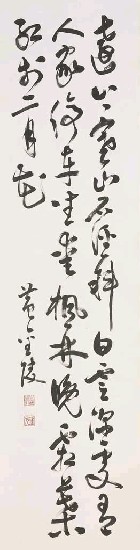 遠上寒山石徑斜白雲深處有
人家停車坐愛楓林晚霜葉
紅於二月花
黃金陵